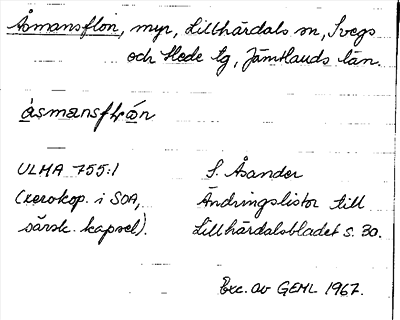 Åsmansflon, myr, Lillhärdals sn, Svegs
och Hede tg, Jämtlands län.
åsmansfłøn
ULMA 755:1
(xerokop. i SOA,
särsk. kapsel).
S. Åsander
Ändringslistor till
Lillhärdalsbladet s. 20.
Exc. av GEHL 1967.